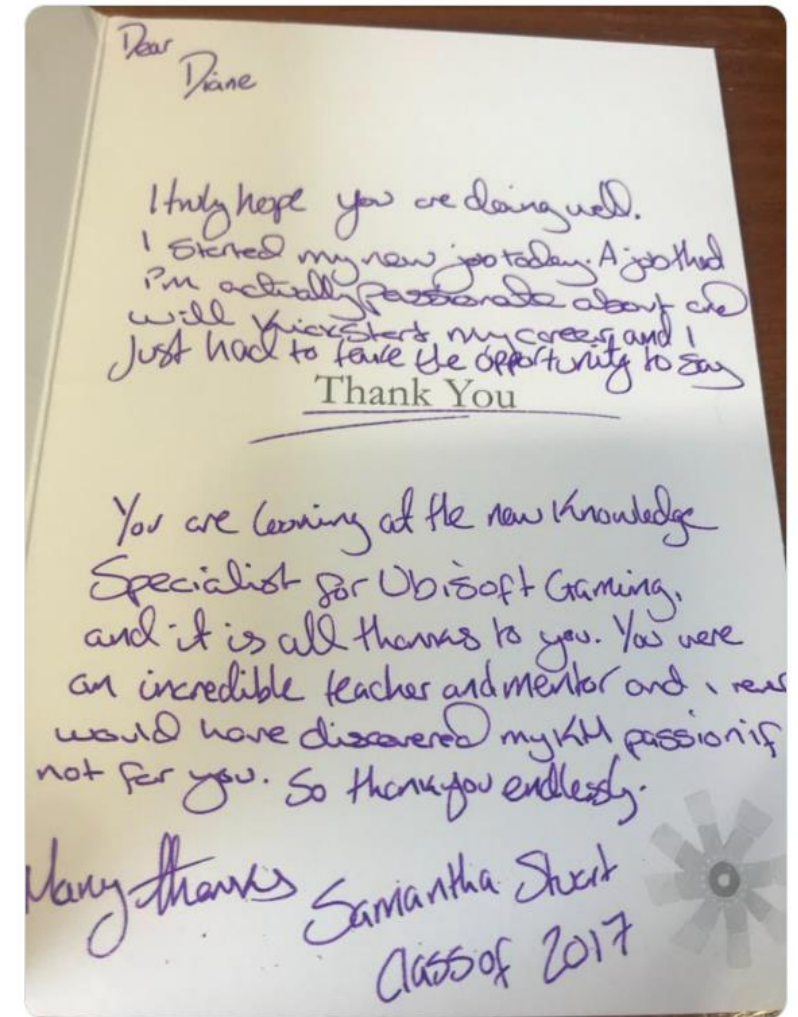 Dear
Diane
I truly hope you are doing well.
I started my new job today. A job that
i'm actually passionate about and
will kickstart my career, and I
Just had to take the opportunity to say
Thank You
You are looking at the new Knowledge
Specialist for Ubisoft Gaming,
and it is all thanks to you. You were
an incredible teacher and mentor and i never
would have discovered my KM passion if
not for you. So thankyou endlessly.
Many thanks
Samantha Stuart
Class of 2017